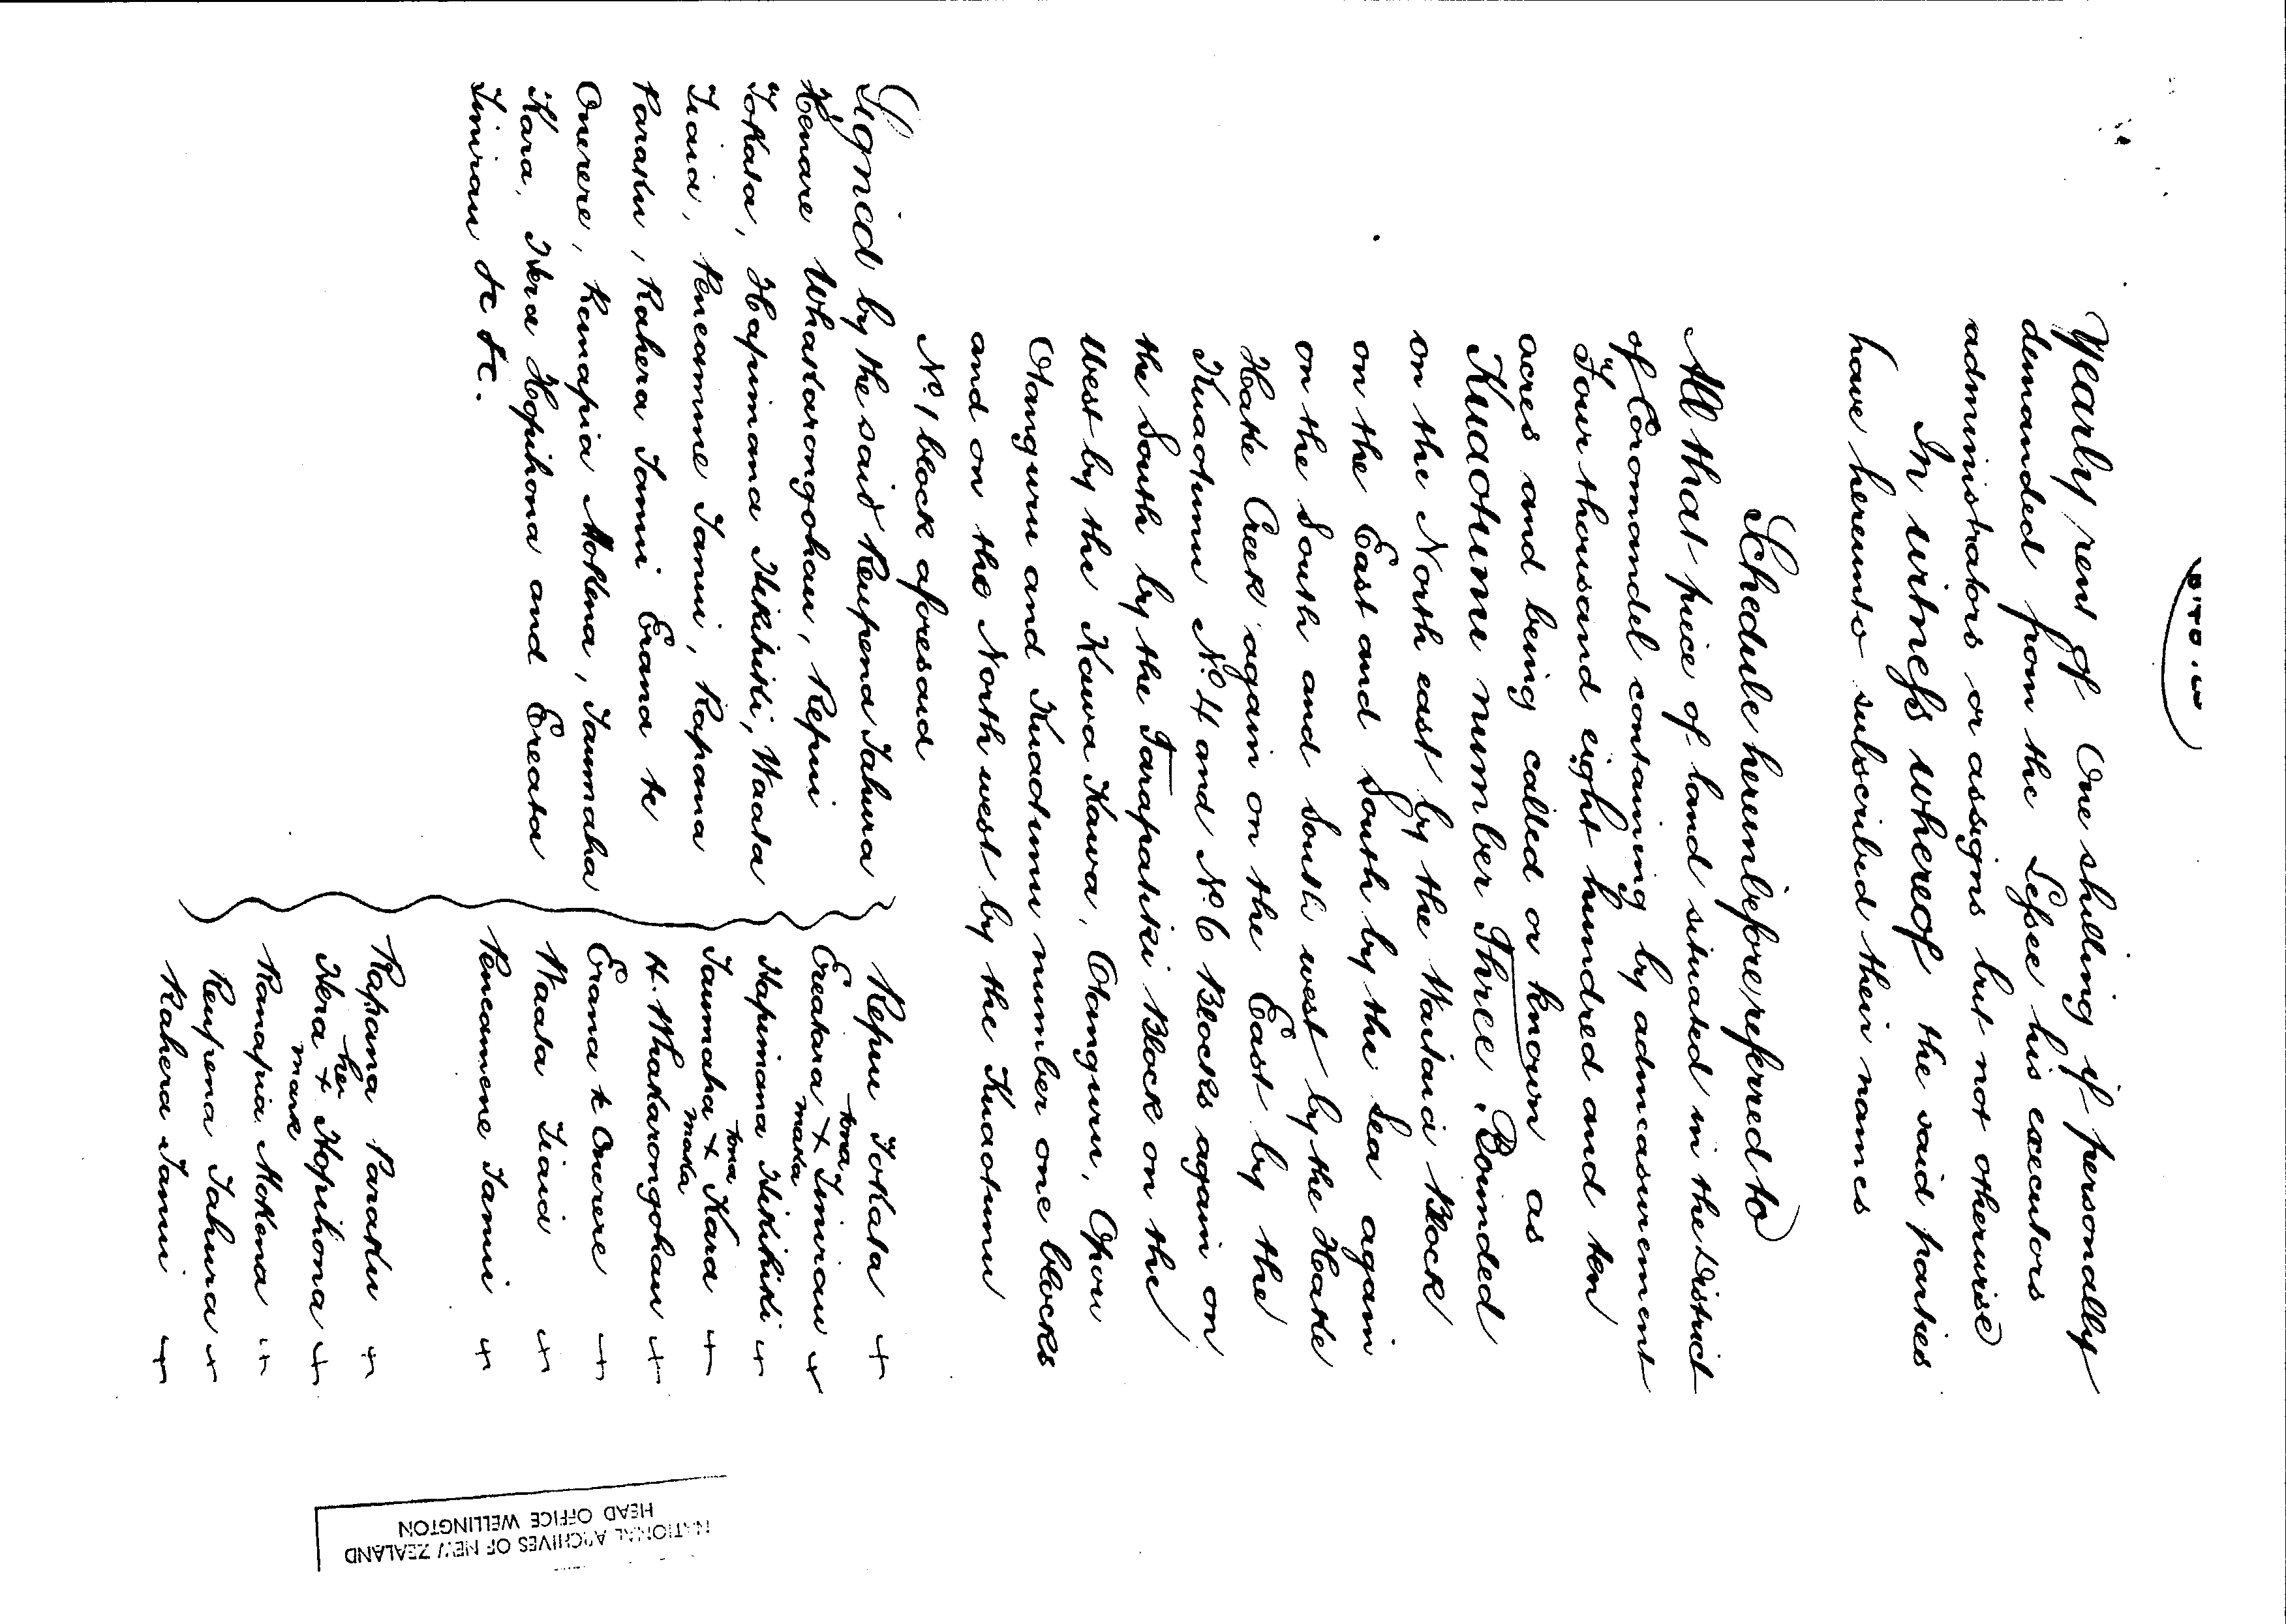 Yearly rent of One shilling if personally
demanded from the Lessee his executors
administrators or assigns but not otherwise
In witness whereof the said parties
have hereunto subscribed their names
Schedule hereinbefore referred to
All that piece of land situated in the District
of Coromandel containing by admeasurement
Four thousand eight hundred and ten
acres and being called or known as
Kuaotunu number Three. Bounded
on the North east by the Waitaia Block
on the East and South by the Sea again
on the South and South west by the Hoake
Hoake Creek again on the East by the
Kuaotunu No. 4 and No. 6 Blocks again on
the South by the Tarapatiki Block on the
West by the Kawa Kawa, Otanguru, Opou
Otanguru and Kuaotunu number one blocks
and on the North west by the Kuaotunu
No. 1 block aforesaid
Signed by the said Reupena Tahura
Henare Whakarongohau, Repui
Tokata, Hapimana Hikihiki, Waata
Tiaia, Peneamene Tamui, Rapana
Paraku, Rahera Tamui Erana te
Onerere, Ranapia Mokena, Taumaha
Kara, Hera Hopihona and Ereata
Timirau &c &c.
Repui Tokata +
tona
Ereatara x Timirau +
maka
Hapimana Hikihiki +
tona
Taumaha x Kara +
maka
H. Whakarongohau +
Erana te Onerere +
Waata Tiaia +
Peneamene Tamui +
Rapana Paraku +
her
Hera + Hopihona +
mark
Ranapia Mokena +
Reupena Tahura +
Rahera Tamui +
NATIONAL ARCHIVES OF NEW ZEALAND
HEAD OFFICE WELLINGTON